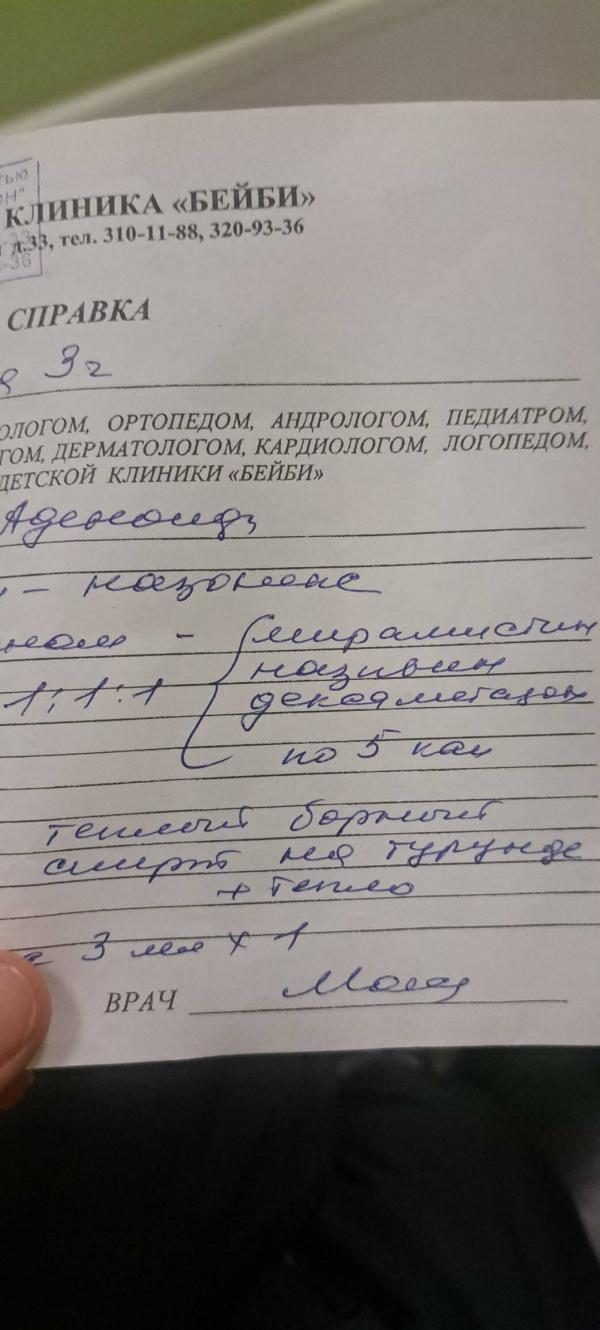 тью
ОН"
КЛИНИКА «БЕЙБИ»
д.33, тел. 310-11-88, 320-93-36
-36
СПРАВКА
я 3г
ОЛОГОМ, ОРТОПЕДОМ, АНДРОЛОГОМ, ПЕДИАТРОМ,
ГОМ, ДЕРМАТОЛОГОМ, КАРДИОЛОГОМ, ЛОГОПЕДОМ,
ДЕТСКОЙ КЛИНИКИ «БЕЙБИ»
Аденоиды
- назонекс
- мирамистин
1:1:1 називин
дексаметазон
по 5 кап
теплый борный
спирт на турунде
+ тепло
3 мл х 1
ВРАЧ